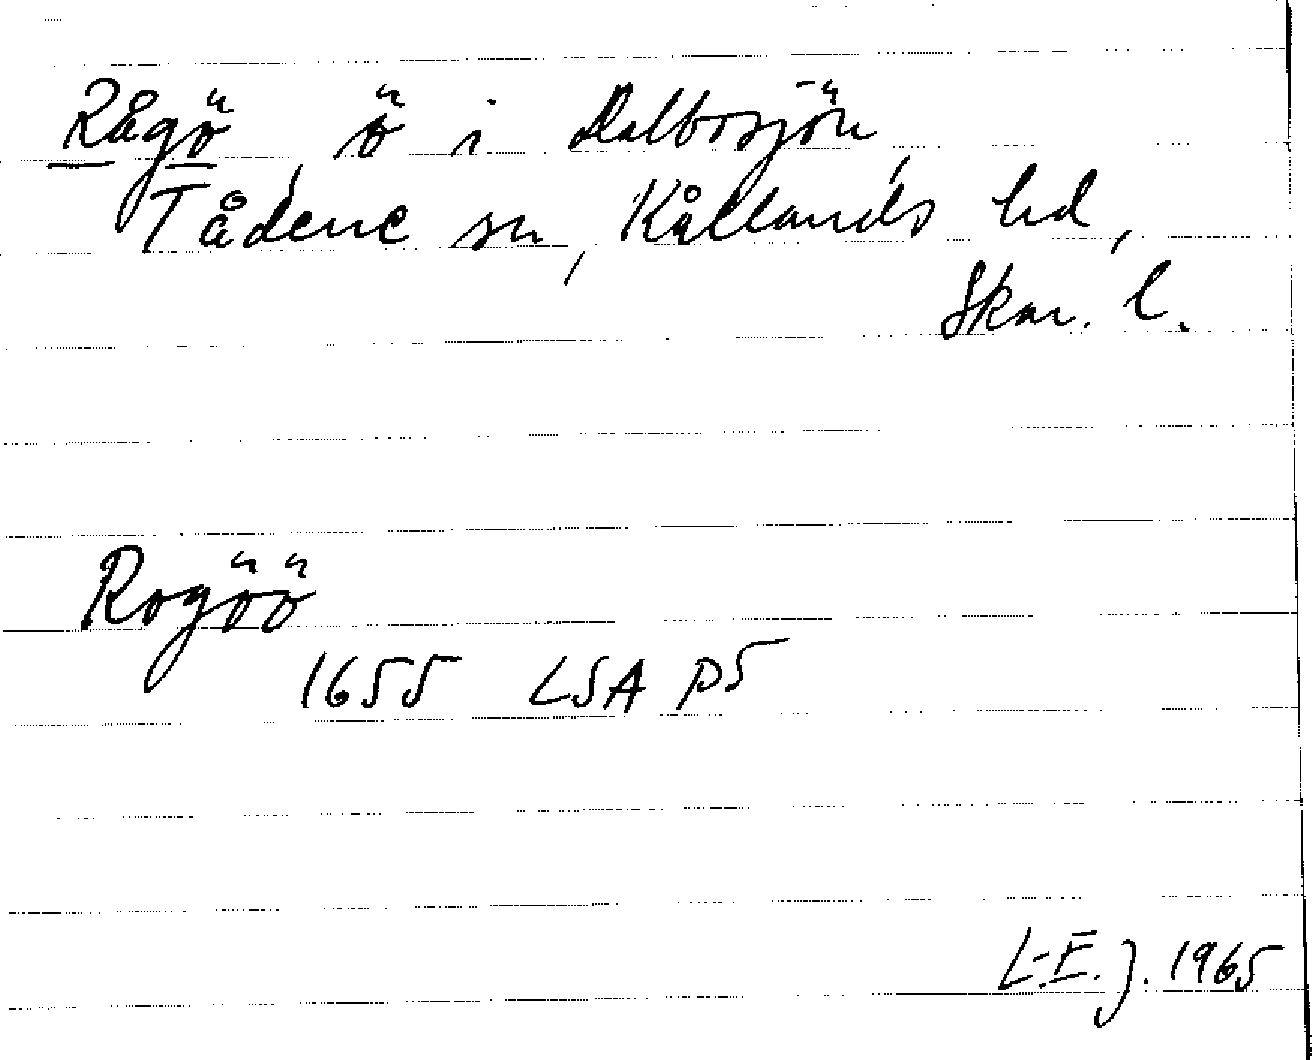 Rågö, ö i Dalbosjön,
Tådene sn, Kållands hd,
Skar. l.
Rogöö
1655 LSA P5
L-E. J. 1965